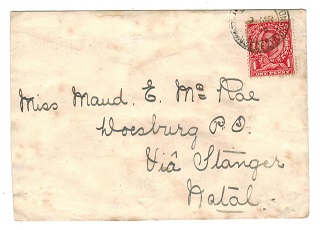 ONE PENNY
Miss Maud. E. Mc Rae
Doesburg P.O.
Viâ Stanger
Natal.